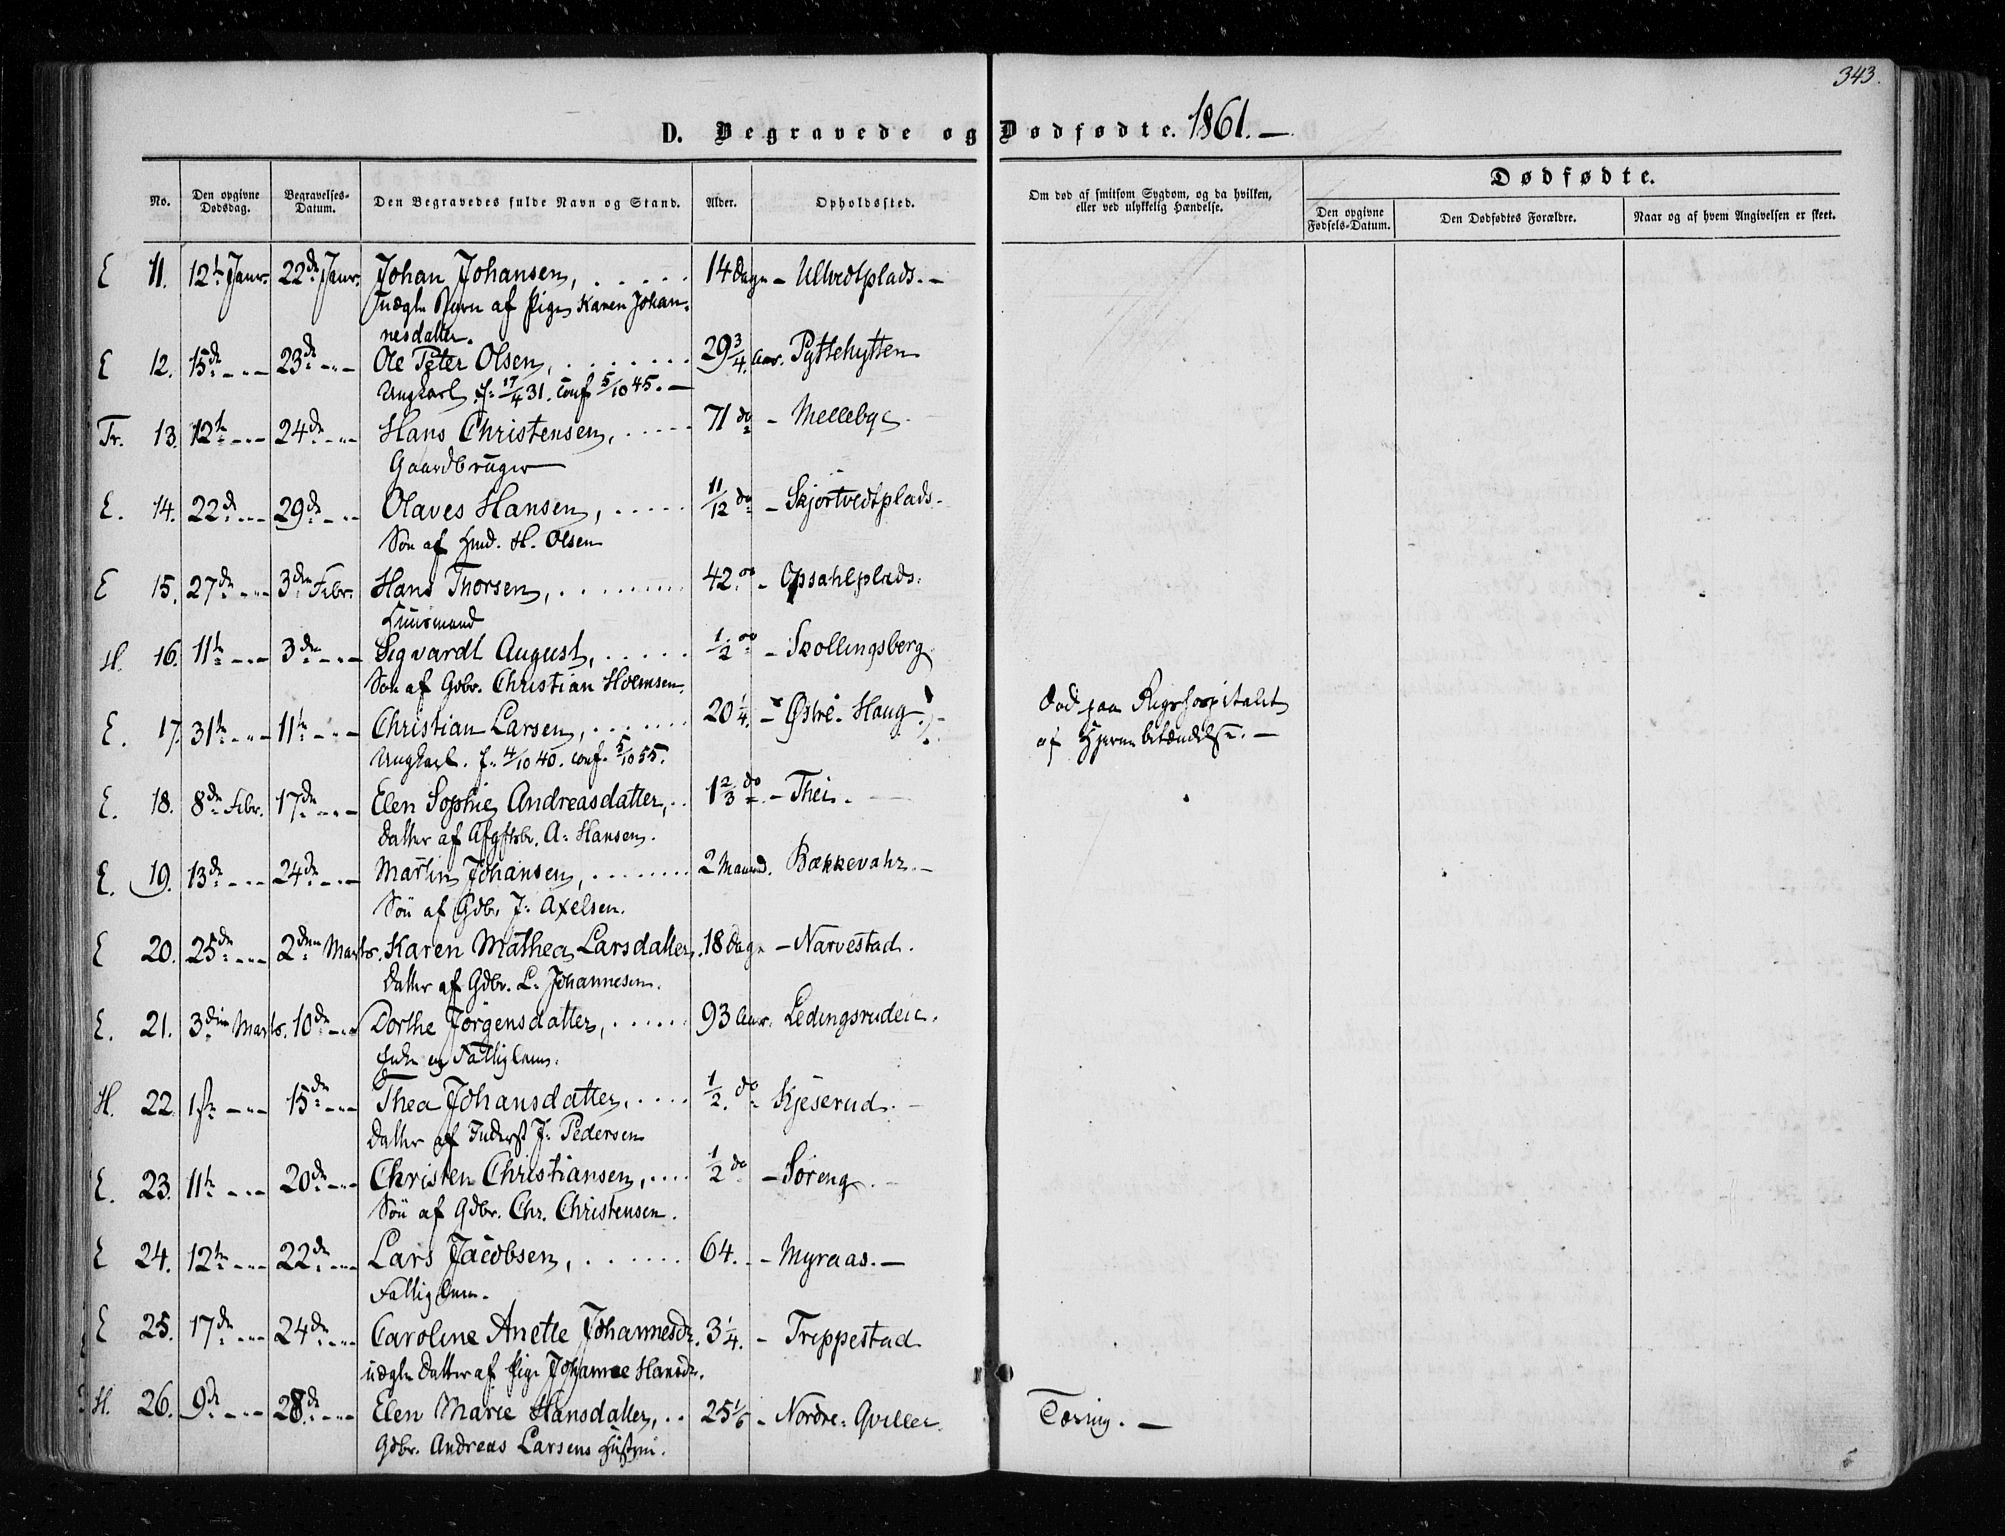 343.
D. Begravede og Dødfødte. 1861. —
No.
Den opgivne Dødsdag.
Begravelses-Datum.
Den Begravedes fulde Navn og Stand.
Alder.
Opholdssted.
Om død af smitsom Sygdom, og da hvilken, eller ved ulykkelig Hændelse.
Dødfødte.
Den opgivne Fødsels-Datum.
Den Dødfødtes Forældre.
Naar og af hvem Angivelsen er skeet.
E 11. 12te Janr. 22de Janr. Johan Johansen, . . . . . 14 Dage – Ulvedtplads. –
Uægte Barn af Pige Karen Johan-
nesdatter.
E 12. 15de – „ – 23de – „ – Ole Peter Olsen, . . . . . 29 3/4 Aar. Pyttehytten
Ungkarl f. 17/4 31. conf 5/10 45. –
Tr. 13. 12te – „ – 24de – „ – Hans Christensen, . . . . 71 do – Mellebye
Gaardbruger
E. 14. 22de – „ – 29de – „ – Olaves Hansen, . . . . . 11/12 do – Skjortvedtplads.
Søn af Hmd. H. Olsen
E 15. 27de – „ – 3die Febr. Hans Thorsen, . . . . . 42. do – Opsahlplads.
Huusmand
H. 16. 11te – „ – 3die – „ – Sigvardt August, . . . . . 1/2 do – Skollingsberg
Søn af Gdbr. Christian Holmsen.
E. 17. 31te – „ – 11te – „ – Christian Larsen, . . . . . 20 1/4. – Østre-Haug
Død paa Rigshospitalet
Ungkarl. f. 4/10 40. conf. 5/10 55.
af Hjernebetændelse. –
E. 18. 8de Febr. 17de – „ – Elen Sophie Andreasdatter, . . 1 2/3 do – Thei.
Datter af Afgftsbr. A. Hansen.
E. 19. 13de – „ – 24de – „ – Martin Johansen, . . . . . 2 Maaned. Bækkevahr. –
Søn af Gdbr. J. Axelsen.
E 20. 25de – „ – 2den Marts. Karen Mathea Larsdatter. 18 Dage – Narvestad.
Datter af Gdbr. L. Johannesen.
E. 21. 3die Marts. 10de – „ – Dorthe Jørgensdatter, . . . . . 93 Aar. Ledingsrudeie.
Enke og Fattiglem.
H. 22. 1ste – „ – 15de – „ – Thea Johansdatter, . . . . 1/2. do Kjeserud. –
Datter af Inderst J. Pedersen
E. 23. 11te – „ – 20de – „ – Christen Christiansen, . . . . 1/2 do – Søreng. –
Søn af Gdbr. Chr. Christensen.
E 24. 12te – „ – 22de – „ – Lars Jacobsen, . . . . . 64. – Myraas. –
Fattiglem.
E 25. 17de – „ – 24de – „ – Caroline Anette Johannesdr. 3 1/4. – Treppestad
uægte Datter af Pige Johanne Hansdr.
H. 26. 9de – „ – 28de – „ – Elen Marie Hansdatter, . . 25 1/6 – Nordre-Gviller. Tæring. –
Gdbr. Andreas Larsens Hustru.